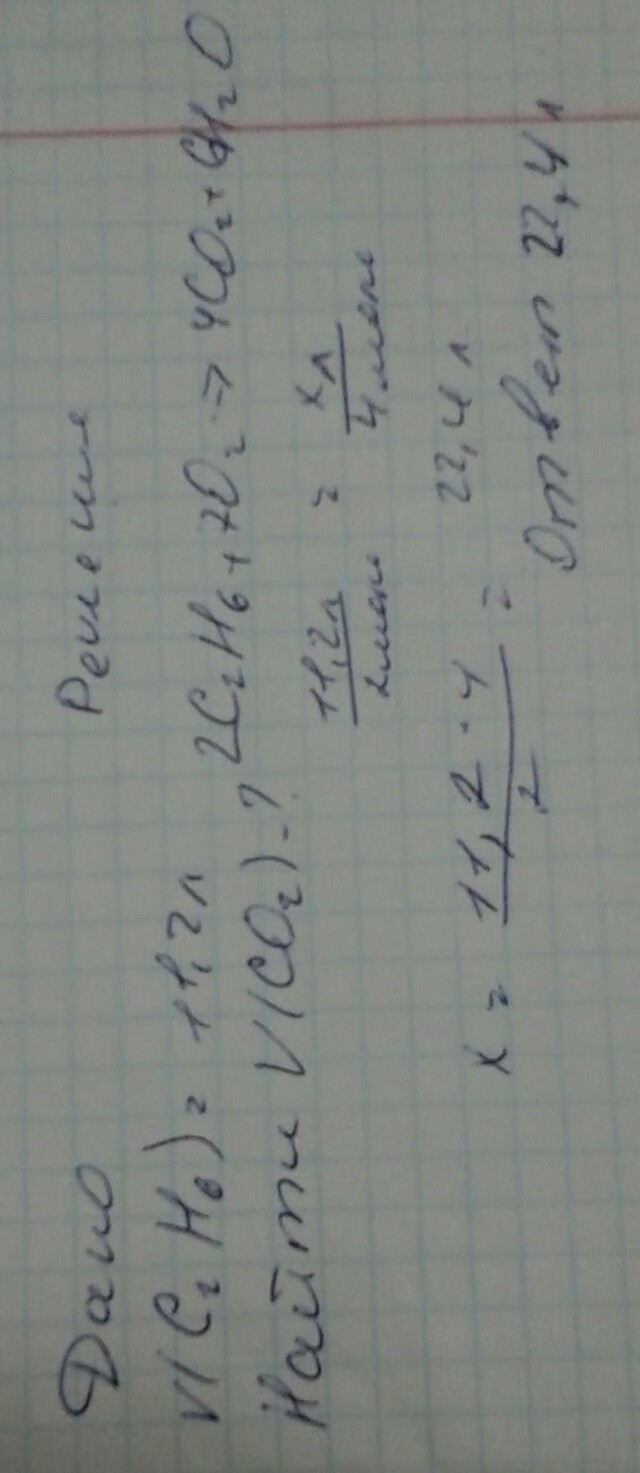 Дано
Решение
V(C₂H₆) = 11,2л
2C₂H₆ + 7O₂ → 4CO₂ + 6H₂O
Найти V(CO₂) - ?
11,2л/2моль = xл/4моль
x = 11,2·4/2 = 22,4 л
Ответ 22,4 л